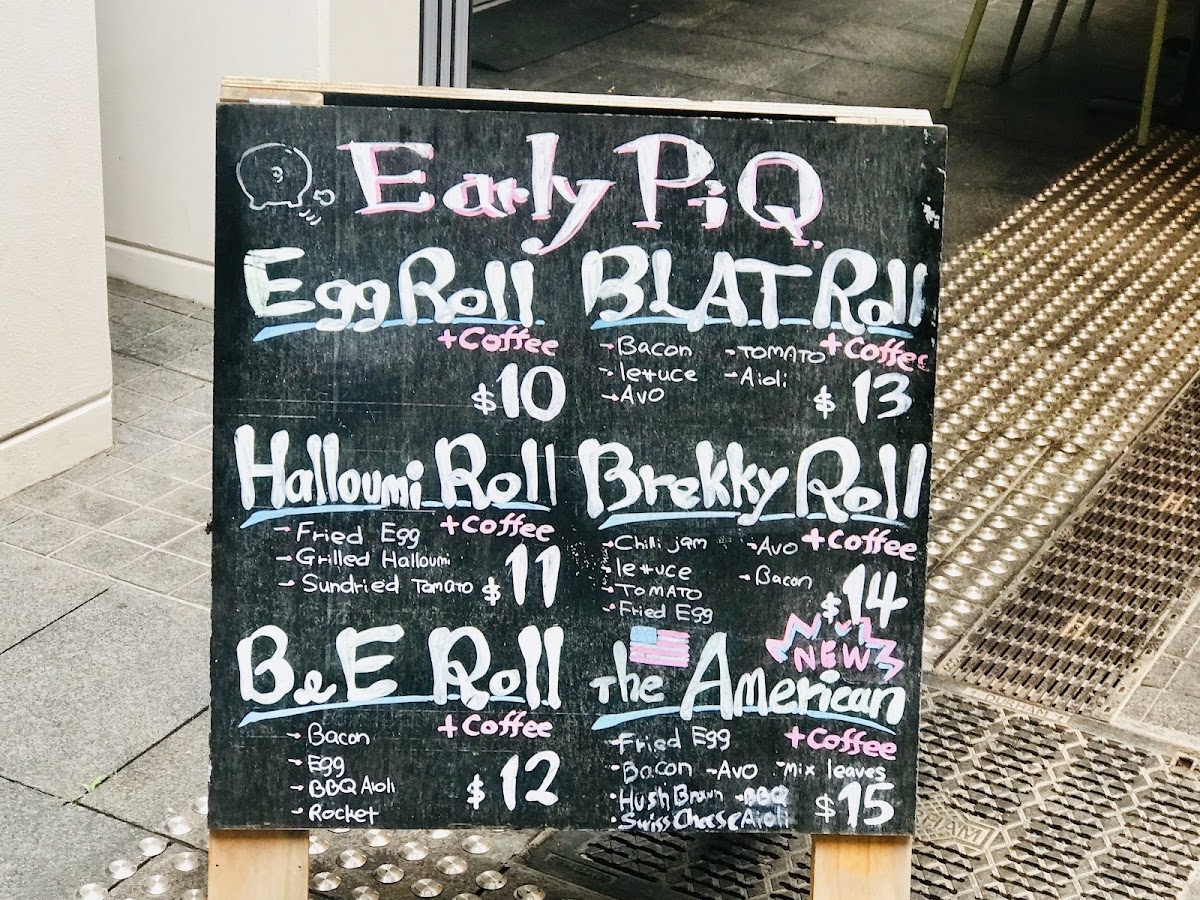 Early PiQ
Egg Roll
+Coffee
$10
BLAT Roll
+Coffee
- Bacon
- lettuce
- Avo
- TOMATO
- Aioli
$13
Halloumi Roll
+Coffee
- Fried Egg
- Grilled Halloumi
- Sundried Tomato
$11
Brekky Roll
+Coffee
- Chilli jam
- lettuce
- TOMATO
- Fried Egg
- Avo
- Bacon
$14
B&E Roll
+Coffee
- Bacon
- Egg
- BBQ Aioli
- Rocket
$12
NEW
The American
+Coffee
- Fried Egg
- Bacon - Avo - Mix leaves
• Hush Brown - BBQ
• Swiss Cheese Aioli
$15